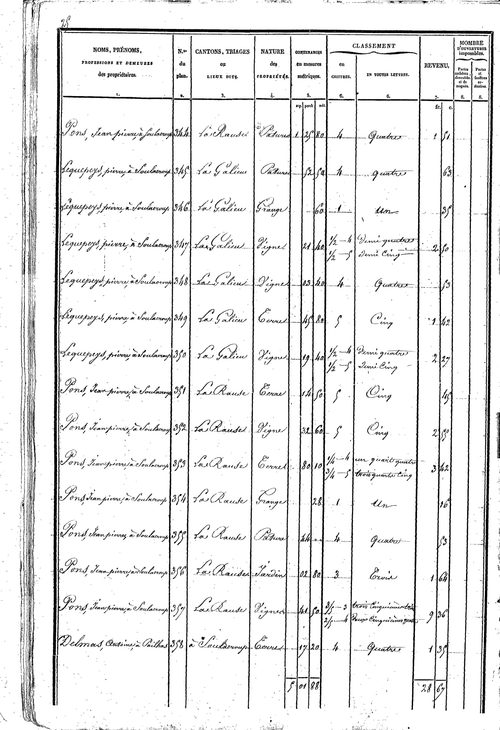 28
NOMS, PRÉNOMS,
PROFESSIONS ET DEMEURES
des propriétaires.
N.os du plan.
CANTONS, TRIAGES
ou
LIEUX DITS.
NATURE
des
PROPRIÉTÉS.
CONTENANCES
en mesures
métriques.
CLASSEMENT
en
CHIFFRES.
EN TOUTES LETTRES.
REVENU.
NOMBRE
D'OUVERTURES
imposables.
1. 2. 3. 4. 5. 6. 6. 7. 8. 8.
Pons, Jean pierre, à Soulacroup 344 La Rause Pature 1 25 80 4 Quatre 1 51
Lequepeys, pierre, à Soulacroup 345 La Galieu Pature 52 50 4 quatre 63
Lequepeys, pierre, à Soulacroup 346 La Galieu Grange 60 1 Un 35
Lequepeys, pierre, à Soulacroup 347 La Galieu Vigne 21 40 1/2 - 4 Demi quatre 2 50
1/2 - 5 Demi Cinq
Lequepeys, pierre, à Soulacroup 348 La Galieu Vigne 03 40 4 Quatre 53
Lequepeys, pierre, à Soulacroup 349 La Galieu Terre 45 80 5 Cinq 1 42
Lequepeys, pierre, à Soulacroup 350 La Galieu Vigne 19 40 1/2 - 4 Demi quatre 2 27
1/2 - 5 Demi Cinq
Pons, Jean pierre, à Soulacroup 351 La Rause Terre 14 50 5 Cinq 45
Pons, Jean pierre, à Soulacroup 352 La Rause Vigne 32 60 5 Cinq 2
Pons, Jean pierre, à Soulacroup 353 La Rause Terre 80 10 1/4 - 4 un quart quatre 3 42
3/4 - 5 trois quarts Cinq
Pons, Jean pierre, à Soulacroup 354 La Rause Grange 28 1 Un 16
Pons, Jean pierre, à Soulacroup 355 La Rause Pature 44 4 Quatre 53
Pons, Jean pierre, à Soulacroup 356 La Rause Jardin 02 80 3 Trois 1 64
Pons, Jean pierre, à Soulacroup 357 La Rause Vigne 41 50 3/5 - 3 trois Cinquièmes trois 9 36
2/5 - 4 Deux Cinquièmes quatre
Delmas, à Pailhas 358 à Soulacroup Terre 17 20 4 Quatre 1 35
5 01 88 28 67